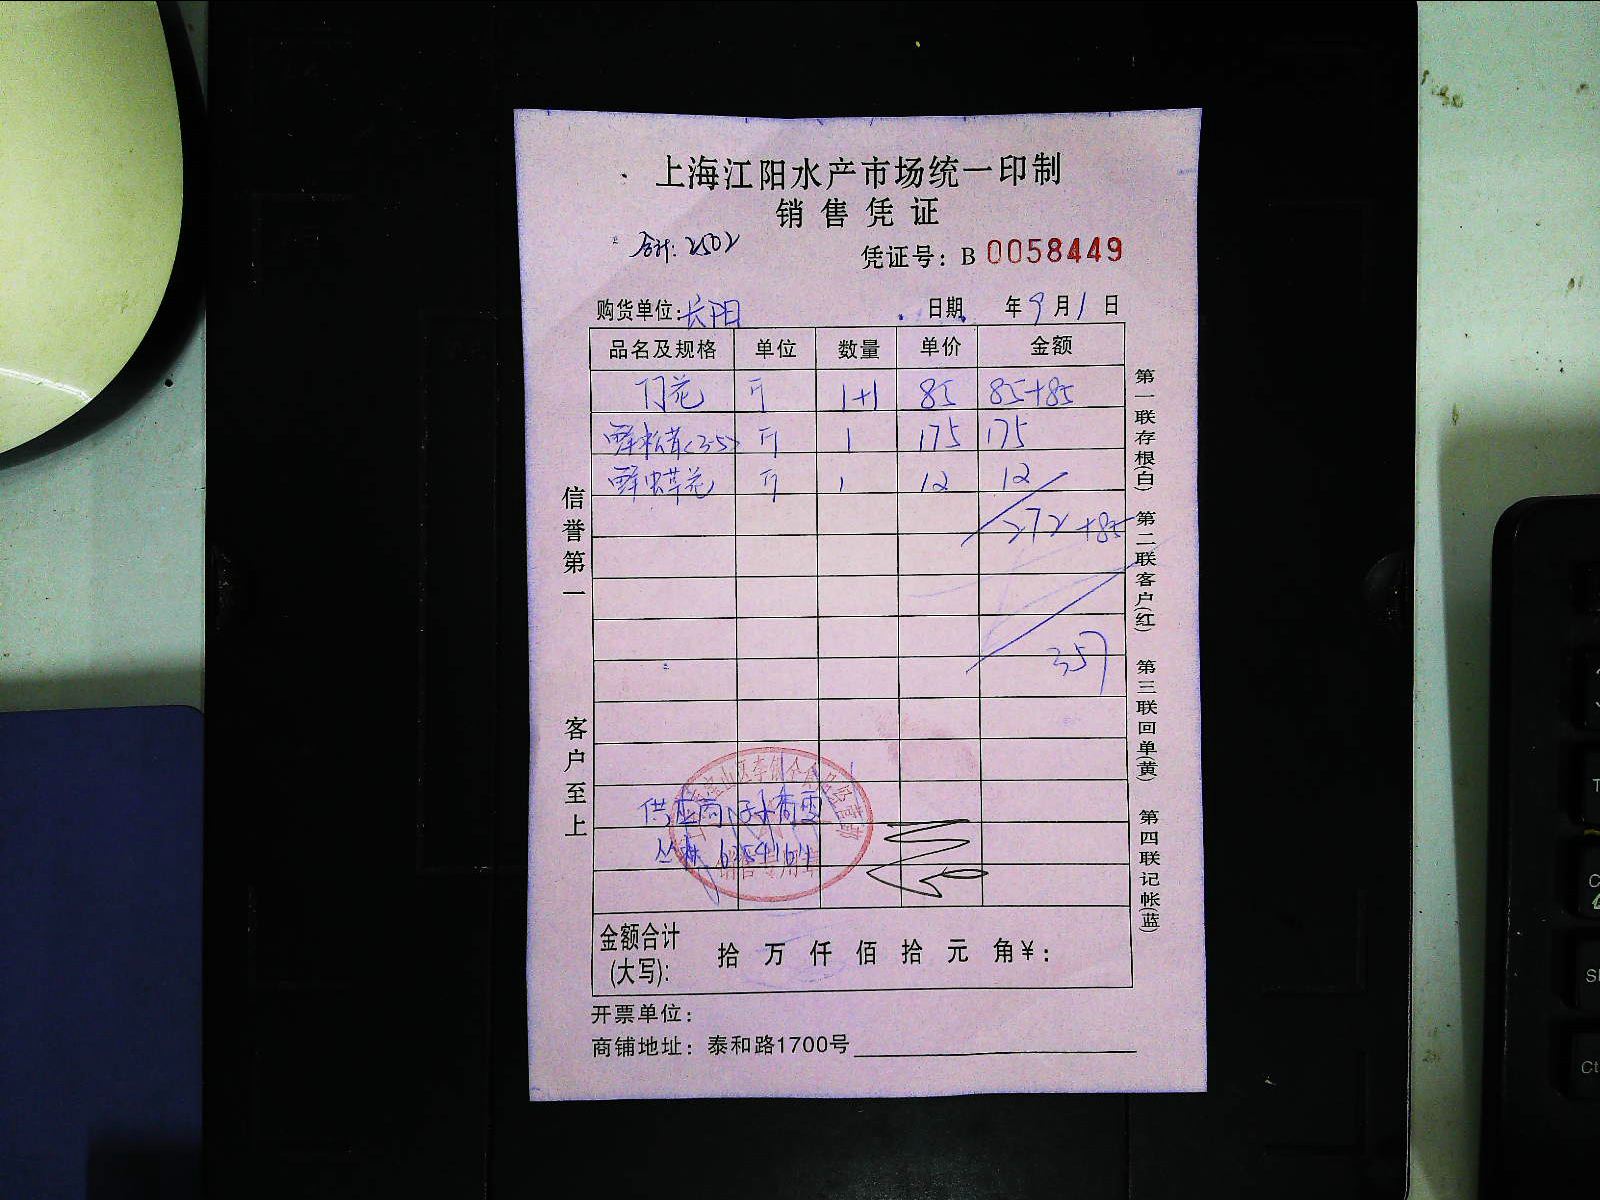 上海江阳水产市场统一印制
销售凭证
合计: 2502
凭证号: B 0058449
购货单位: 长阳 日期 年 9 月 1 日
品名及规格 单位 数量 单价 金额
门花 斤 1+1 85 85+85
鲜松茸(3-5) 斤 1 175 175
鲜虫草花 斤 1 12 12
272 +85
357
供应商
金额合计(大写): 拾 万 仟 佰 拾 元 角 ¥:
开票单位:
商铺地址: 泰和路1700号
信誉第一 客户至上
第一联存根(白) 第二联客户(红) 第三联回单(黄) 第四联记帐(蓝)
销售专用章